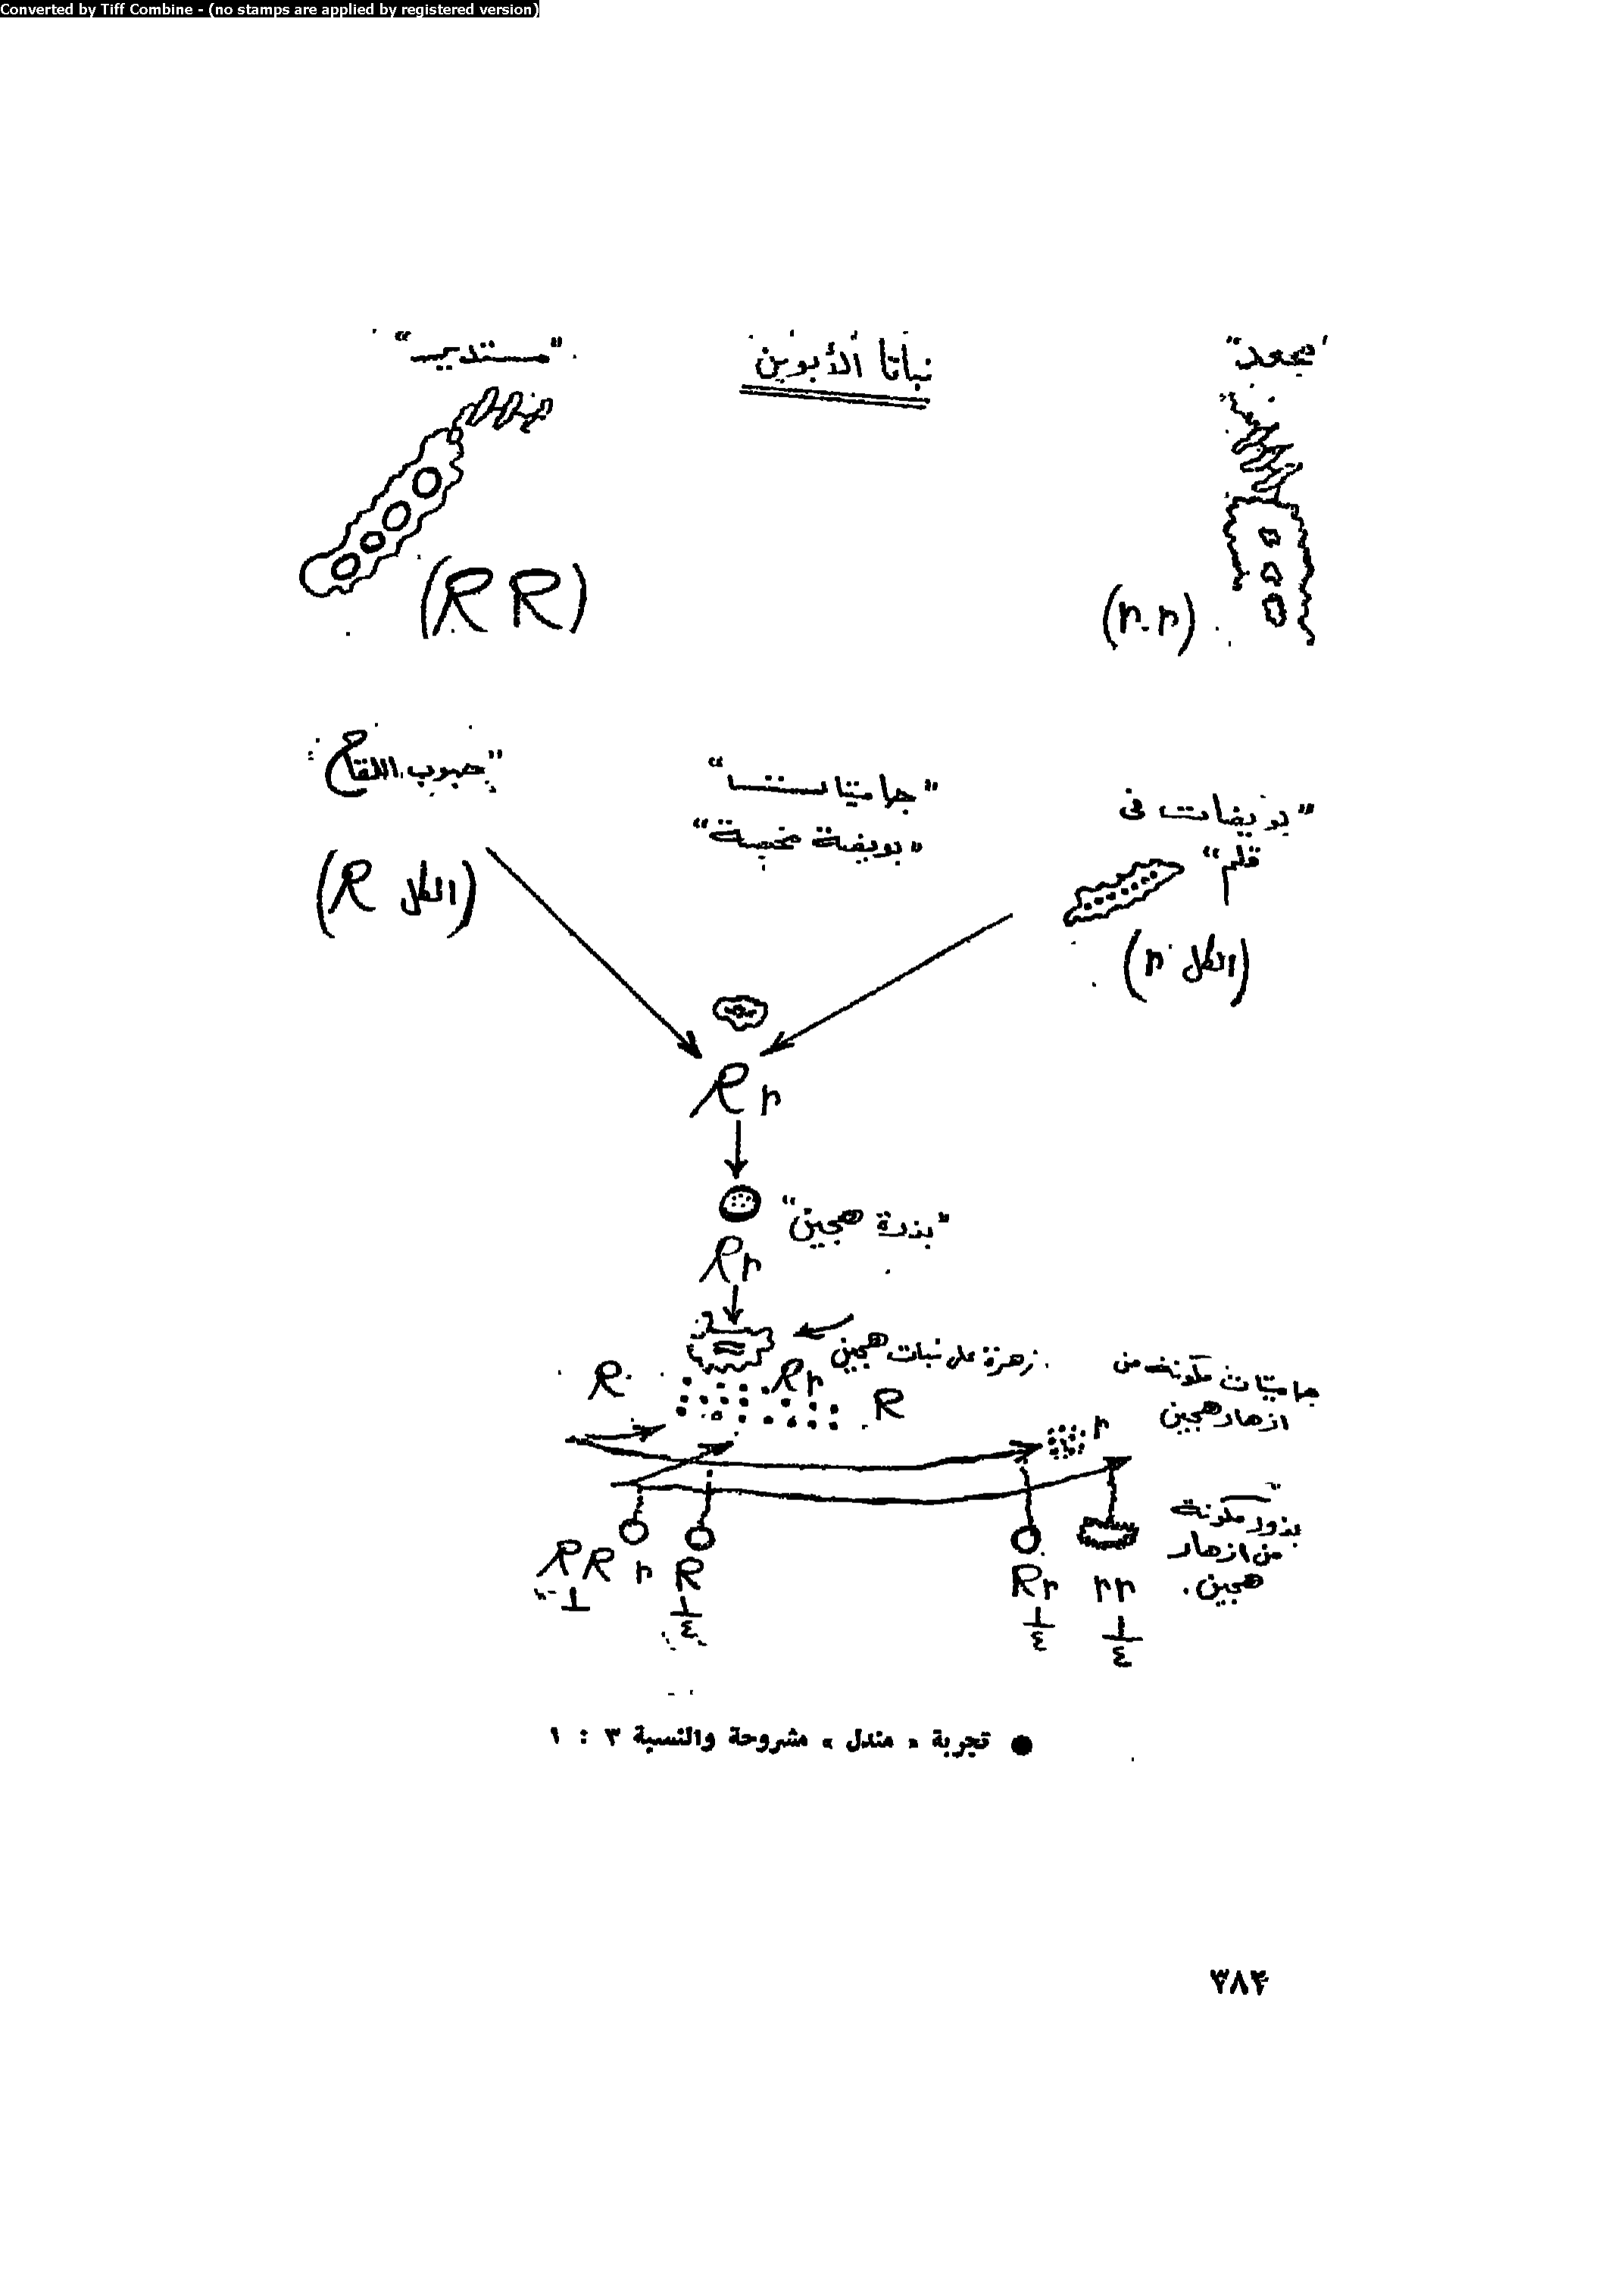 Converted by Tiff Combine - (no stamps are applied by registered version)
"مجعد"
نباتا الأبوين
"مستدير"
(RR)
(r.r)
"حبوب اللقاح"
"جاميتات"
"بويضة مخصبة"
"بويضات فى
قلم"
(الكل R)
(الكل r)
Rr
"بذرة هجين"
Rr
زهرة على نبات هجين
جاميتات مكونة من
ازهار هجين
R
Rr
R
r
بذور مكونة
من ازهار
هجين.
RR r R
Rr rr
١/٤
١/٤ ١/٤
● تجربة « مندل » مشروحة والنسبة ٣ : ١
٣٨٤